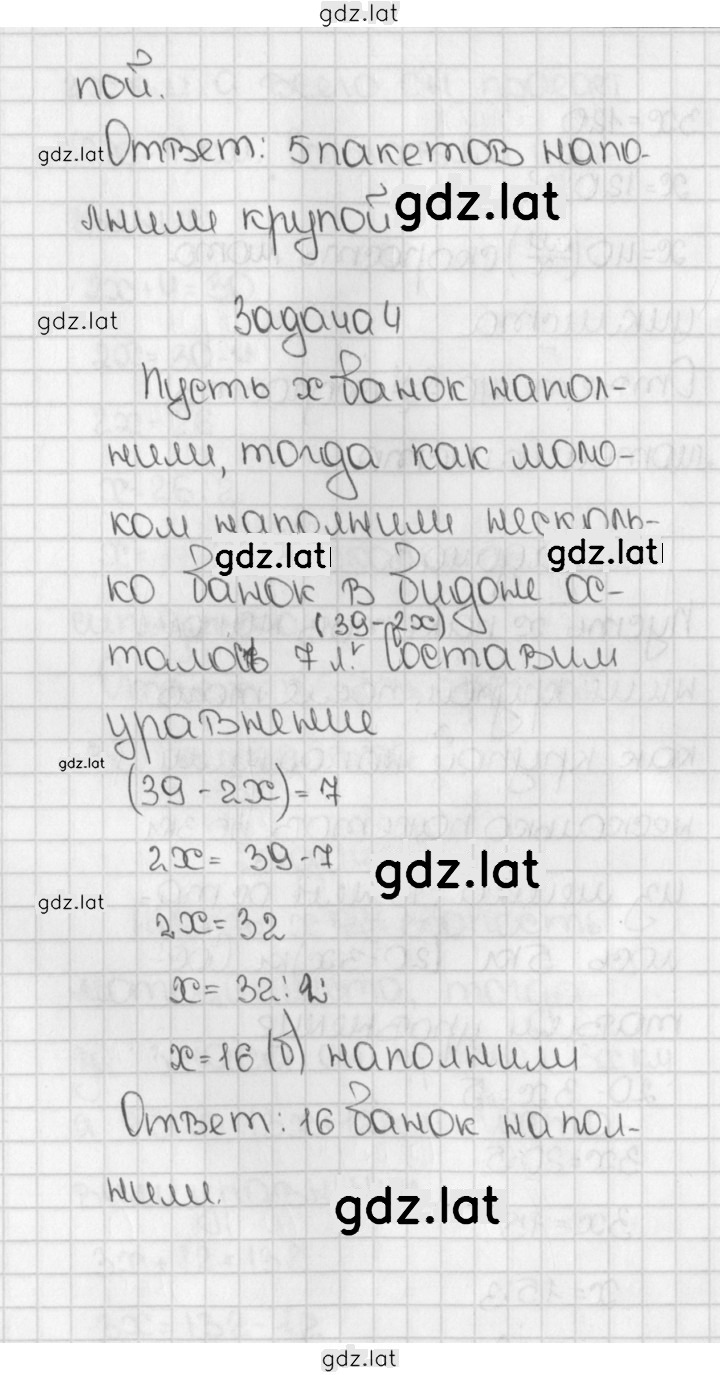 gdz.lat
пой.
gdz.lat Ответ: 5 пакетов напо-
лнили крупой gdz.lat
gdz.lat Задача 4
Пусть x банок напол-
нили, тогда как моло-
ком наполнили несколь-
gdz.lat gdz.lat
ко банок в бидоне ос-
(39-2x)
талось 7 л. Составим
уравнение
gdz.lat
(39-2x)=7
2x= 39-7
gdz.lat
gdz.lat
2x=32
x=32:2
x=16 (б) наполнили
Ответ: 16 банок напол-
нили.
gdz.lat
gdz.lat